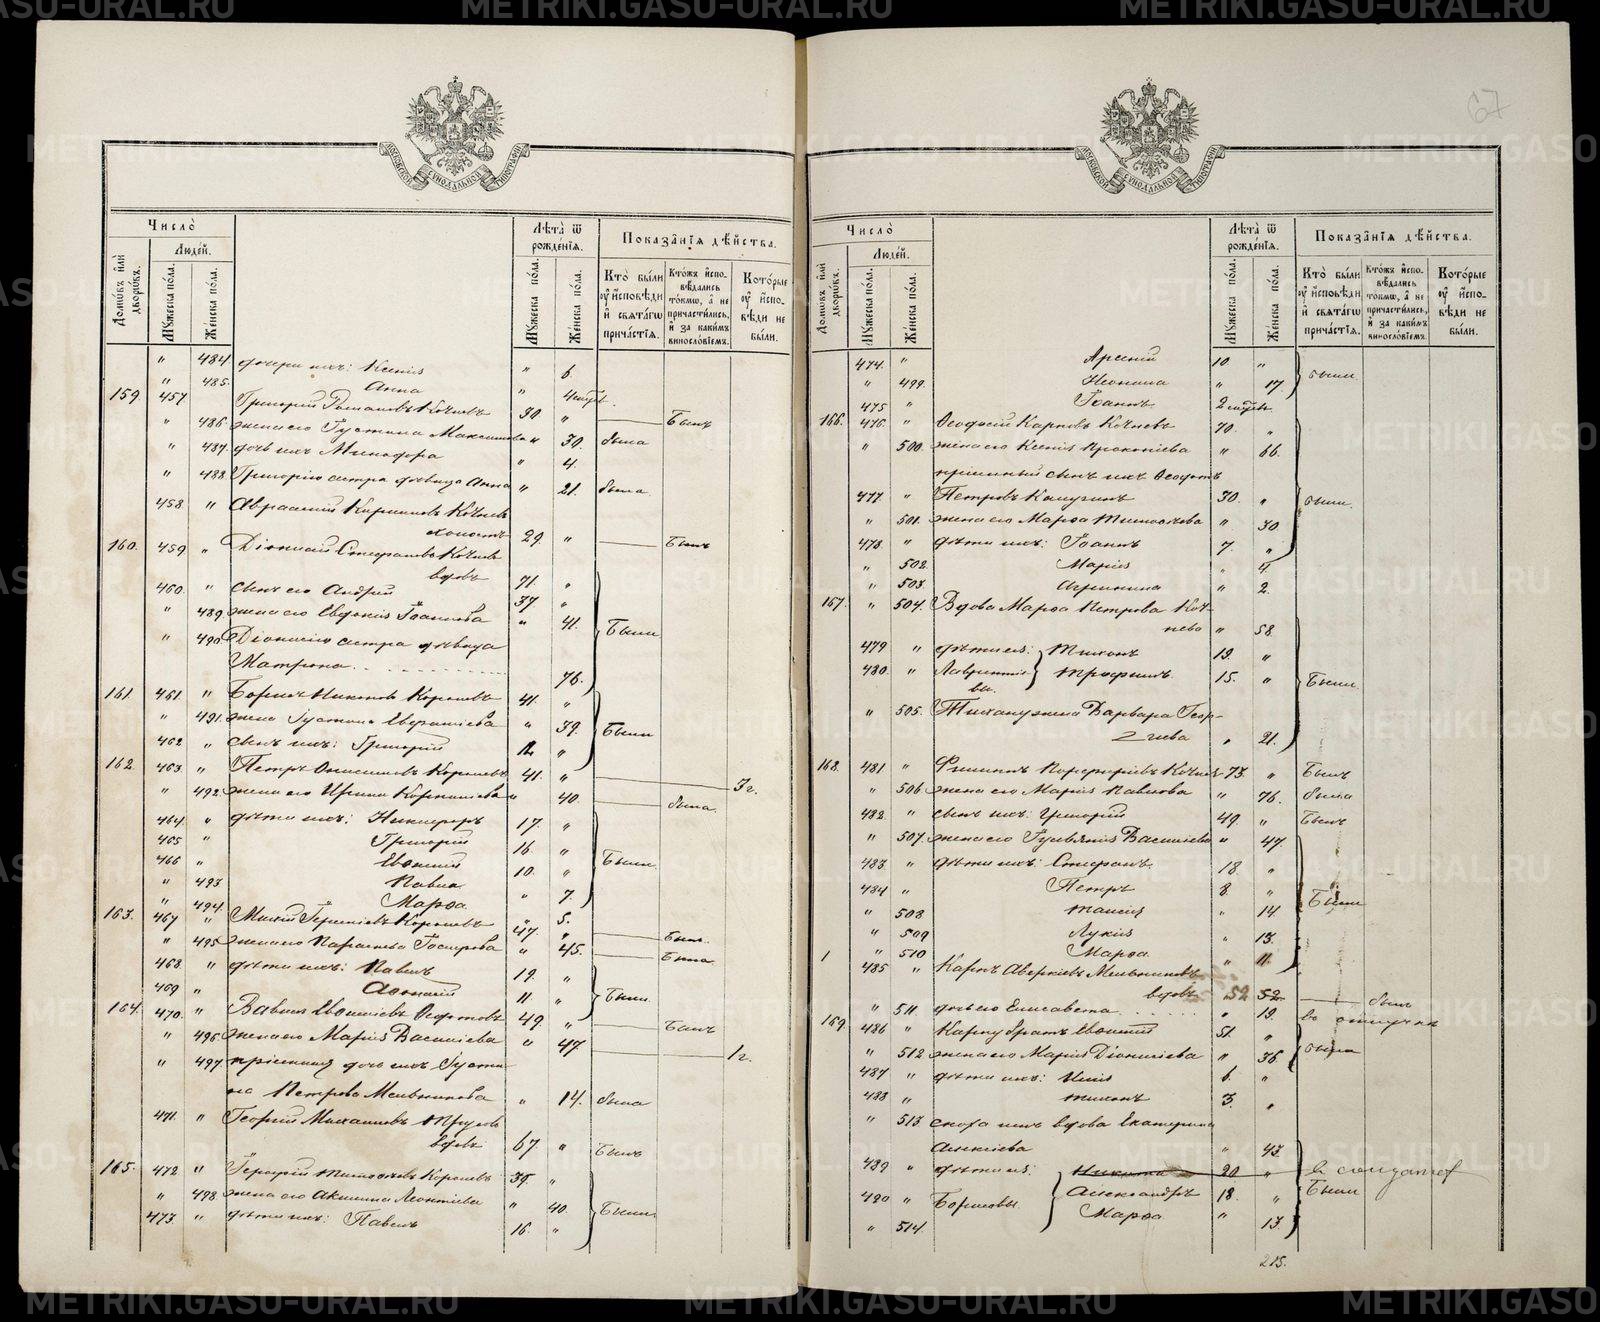 METRIKI.GASO-URAL.RU
67
МОСКОВСКОЙ СѴНОДАЛЬНОЙ ТИПОГРАФІИ
Число̀
Людей.
Домѡвъ и҆лѝ дворѡвъ.
Мꙋжеска по́ла.
Же́нска по́ла.
Лѣ́та ѿ рожде́нїѧ.
Мꙋжеска по́ла.
Же́нска по́ла.
Показа́нїѧ дѣ́йства.
Кто̀ бы́ли ᲂу҆ и҆сповѣ́ди и҆ свѧта́гѡ прича́стїѧ.
Кто́жъ и҆спо-вѣ́дались то́кмѡ, а҆ не причасти́лись, и҆ за каки́мъ винословїемъ.
Кото́рые ᲂу҆ и҆спо-вѣ́ди не бы́ли.
" 484 дочери ихъ: Ксенія " 6.
" 485. Анна "
159. 457 Григорій Романовъ Кочневъ 30 " Былъ
" 486. жена его Іустина " 30. была
" 487. дочь ихъ Минодора " 4.
" 488. Григорію сестра дѣвица Анна " 21. была
458. " Кочнев
холостъ 29. " Былъ
160. 459 " Діонисій Стефановъ Кочнев
вдовъ 71. "
460. " сынъ его Андрей 37 "
" 489. жена его Евдокія Іоаннова " 41. Были
" 490. Діонисію сестра дѣвица
Матрона 76.
161. 461. " Борисъ Никоновъ Королевъ 41. "
" 491. жена Іустина " 39. Были
462 " сынъ ихъ: Григорій 12. "
162. 463. " Петръ Онисимовъ Королевъ 41. " 3 г.
" 492. жена его Ирина " 40. была
464. " дѣти ихъ: Никифоръ 17. "
465 " Григорій 16 "
466 " Евѳимій 10. " Были
" 493 Павла " 7.
" 494. Марѳа " 5.
163. 467 " Королевъ 47. " Былъ
" 495. жена его " 45. Была
468. " дѣти ихъ: Павелъ 19. "
469 " Аѳонасій 11. " Были
164. 470. " Вавила Евѳиміевъ Ѳедотовъ 49. " Былъ
" 496. жена его Марія Васильева " 47 1 г.
" 497. пріемная дочь ихъ Іусти-
на Петрова Мельникова " 14. была
471. " Георгій Михаиловъ
вдовъ 67 " Былъ
165. 472 " Тимоѳеевъ Королевъ 39. "
" 498. жена его Акилина Леонтіева " 40. Были
473 " дѣти ихъ: Павелъ 16. "
Число̀
Людей.
Домѡвъ и҆лѝ дворѡвъ.
Мꙋжеска по́ла.
Же́нска по́ла.
Лѣ́та ѿ рожде́нїѧ.
Мꙋжеска по́ла.
Же́нска по́ла.
Показа́нїѧ дѣ́йства.
Кто̀ бы́ли ᲂу҆ и҆сповѣ́ди и҆ свѧта́гѡ прича́стїѧ.
Кто́жъ и҆спо-вѣ́дались то́кмѡ, а҆ не причасти́лись, и҆ за каки́мъ винословїемъ.
Кото́рые ᲂу҆ и҆спо-вѣ́ди не бы́ли.
474. " Арсеній 10 "
" 499. Неонила " 17 были
475 " Іоаннъ
166. 476. " Ѳеодосій Карповъ Кочневъ 70. "
" 500. жена его Ксенія Прокопіева " 66.
пріемный сынъ ихъ Ѳеодотъ
477 " Петровъ 30. " были
" 501. жена его Марѳа Тимоѳеева " 30
478 " дѣти ихъ: Іоаннъ 7. "
" 502 Марія " 4
" 503 " 2.
167. " 504. Вдова Марѳа Петрова Коч-
нева " 58.
479 " дѣти ея: Тихонъ 19. "
480. " Лаврентіе-вы. Трофимъ 15. " Были
" 505. Тихану жена Варвара Геор-
гіева " 21.
168. 481 " Филиппъ Порфиріевъ Кочневъ 73. " Былъ
" 506 жена его Марія Павлова " 76. была
482 " сынъ ихъ: Григорій 49 " Былъ
" 507. жена его Іуліанія Васильева " 47
483 " дѣти ихъ: Стефанъ 18. "
484 " Петръ 8. " Были
" 508 Таисія " 14
" 509 Лукія " 13.
" 510 Марѳа " 11.
1 485 " Карпъ Аверкіевъ Мельниковъ
вдовъ 52 былъ
" 511 дочь его Елисавета " 19. въ отлучкѣ
169. 486 " Карпу братъ Евѳимій 51. "
" 512 жена его Марія Діонисіева " 36. были
487 " дѣти ихъ: Илія 6. "
488 " Тихонъ 3. "
" 513 сноха ихъ вдова Екатерина
Алексіева " 43
489 " дѣти ея: Никита 20 " въ солдатахъ
490 " Борисовы Александръ 18. " Были
" 514. Марѳа " 13.
215.